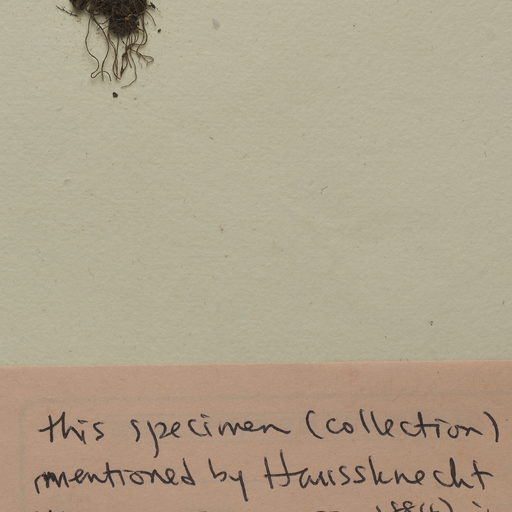 this specimen (collection)
mentioned by Haussknecht